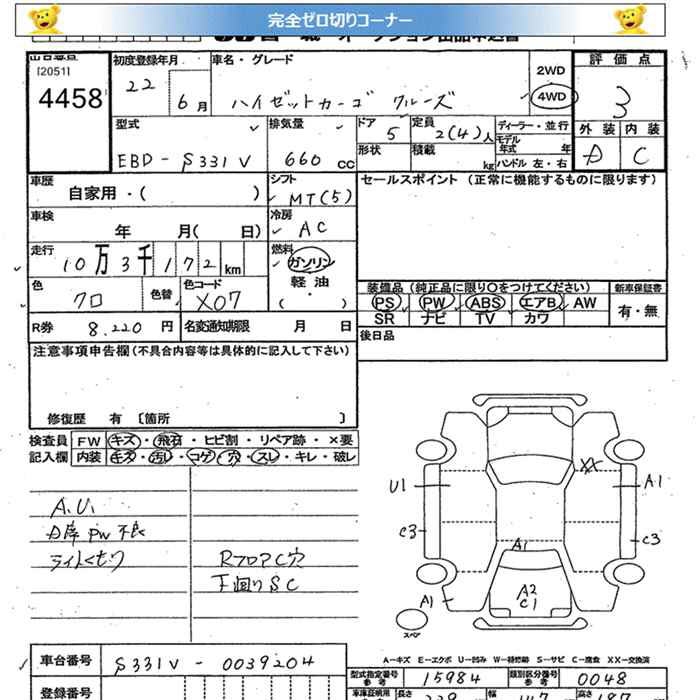 完全ゼロ切りコーナー
[2051] 初度登録年月 車名・グレード 評価点
4458 22 6月 ハイゼットカーゴ クルーズ 2WD 4WD 3
型式 排気量 ドア 定員 ディーラー・並行 外装 内装
EBD-S331V 660 CC 5 2(4)人 モデル年式 年 A C
形状 積載 kg ハンドル 左・右
車歴 シフト セールスポイント (正常に機能するものに限ります)
自家用・( ) MT(5)
車検 冷房
年 月( 日) AC
走行 燃料
10万3千172km ガソリン
軽油
色 色替 色コード ( ・ ) 装備品(純正品に限り○をつけてください) 新車保証書
クロ X07 PS PW ABS エアB AW 有・無
SR ナビ TV カワ
R券 8,220円 名変通知期限 月 日 後日品
注意事項申告欄(不具合内容等は具体的に記入して下さい)
修復歴 有 [箇所 ]
検査員 FW キズ・飛石・ヒビ割・リペア跡・×要
記入欄 内装 キズ・汚レ・コゲ・穴・スレ・キレ・破レ
XX
U1 A1
A.U.
C3 C3
PW不良
A1
ライトくもり RフロアC穴
下回りSC A2
C1
A1
スペア
A-キズ E-エクボ U-凹み W-補修跡 S-サビ C-腐食 XX-交換済
車台番号 S331V-0039204
型式指定番号 参考 15984 類別区分番号 参考 0048
登録番号 車庫証明用 参考 長さ 幅 高さ